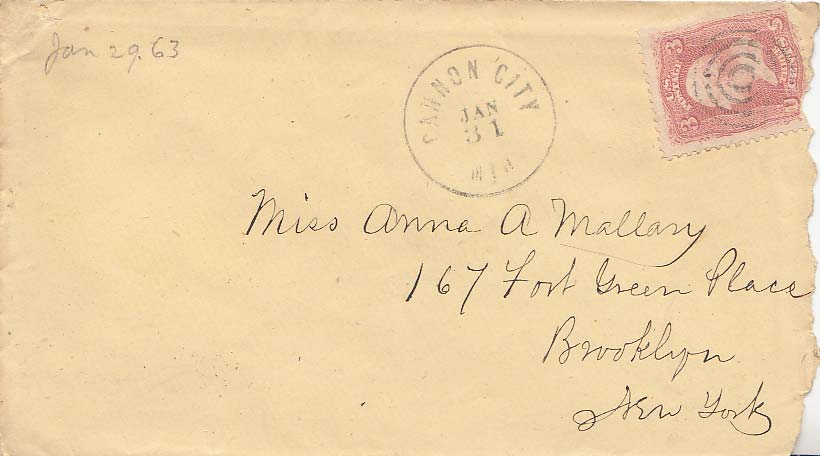 Jan 29. 63
CANNON CITY
JAN
31
MIN
3 3
Miss Anna A Mallary
167 Fort Green Place
Brooklyn
New York